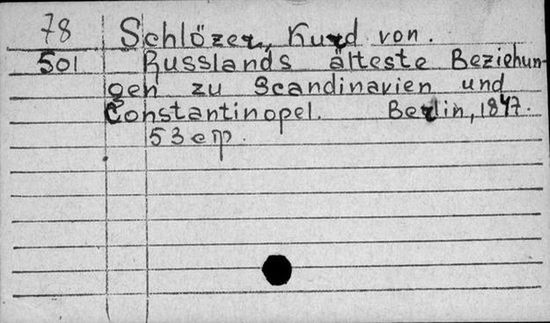 78 Schlözer, Kurd von.
501 Russlands älteste Beziehun-
gen zu Scandinavien und
Constantinopel. Berlin, 1847.
53 стр.